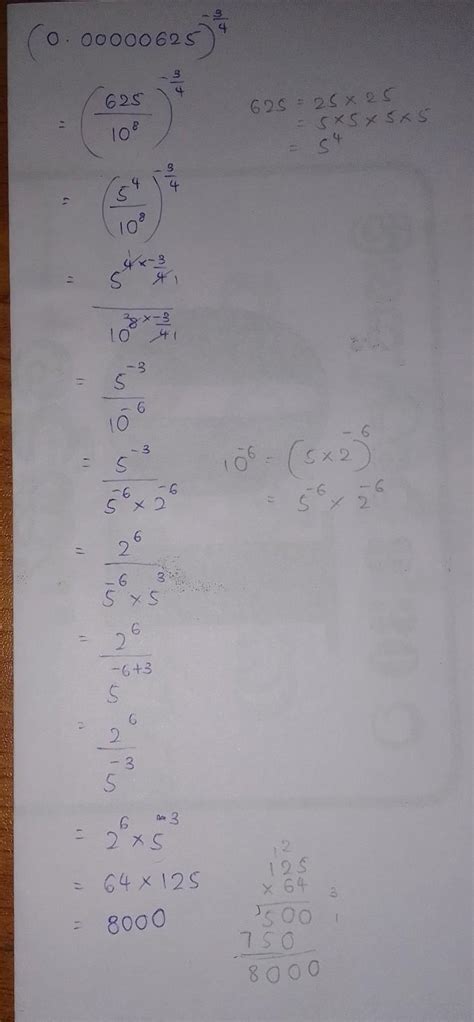 (0.00000625)^-3/4
= (625/10^8)^-3/4
625 = 25 × 25
= 5 × 5 × 5 × 5
= 5^4
= (5^4/10^8)^-3/4
= 5^4×-3/4 / 10^8×-3/4
= 5^-3/10^-6
= 5^-3/5^-6 × 2^-6
10^-6 = (5×2)^-6
= 5^-6 × 2^-6
= 2^6/5^-6 × 5^3
= 2^6/5^-6+3
= 2^6/5^-3
= 2^6 × 5^3
= 64 × 125
= 8000
12
125
× 64
500
750
8000
3
1